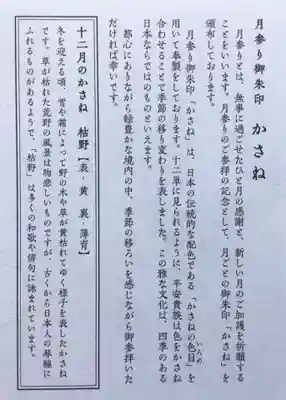 月参り御朱印　かさね
月参りとは、無事に過ごせたひと月の感謝と、新しい月のご加護を祈願する
ことをいいます。月参りのご参拝の記念として、月ごとの御朱印「かさね」を
頒布しております。
月参り御朱印「かさね」は、日本の伝統的な配色である「かさねの色目」を
いろめ
用いて奉製をしております。十二単に見られるように、平安貴族は色をかさね
合わせることで季節の移り変わりを表しました。この雅な文化は、四季のある
日本ならではのものといえます。
都心にありながら緑豊かな境内の中、季節の移ろいを感じながら御参拝いた
だければ幸いです。
十二月のかさね　枯野【表、黄　裏、薄青】
冬を迎える頃、雪や霜によって野の木や草が黄枯れてゆく様子を表したかさね
です。草が枯れた荒野の風景は物悲しいものですが、古くから日本人の琴線に
ふれるものがあるようで、「枯野」は多くの和歌や俳句に詠まれています。